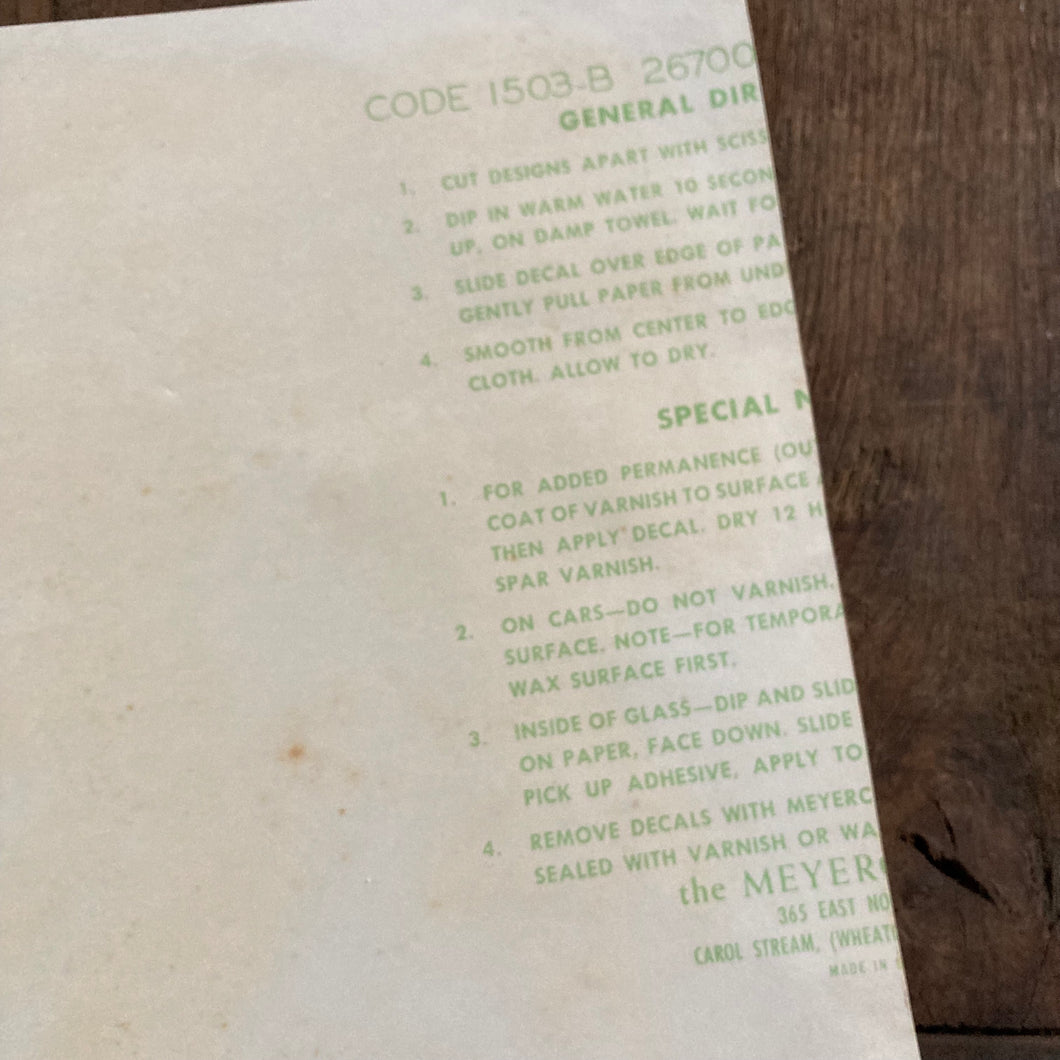 CODE 1503-B 26700
GENERAL DIR
1. CUT DESIGNS APART WITH SCISS
2. DIP IN WARM WATER 10 SECON
UP, ON DAMP TOWEL. WAIT FO
3. SLIDE DECAL OVER EDGE OF PA
GENTLY PULL PAPER FROM UND
4. SMOOTH FROM CENTER TO EDG
CLOTH. ALLOW TO DRY.
SPECIAL N
1. FOR ADDED PERMANENCE (OU
COAT OF VARNISH TO SURFACE
THEN APPLY DECAL. DRY 12 H
SPAR VARNISH.
2. ON CARS—DO NOT VARNISH.
SURFACE. NOTE—FOR TEMPORA
WAX SURFACE FIRST.
3. INSIDE OF GLASS—DIP AND SLID
ON PAPER, FACE DOWN. SLIDE
PICK UP ADHESIVE, APPLY TO
4. REMOVE DECALS WITH MEYERC
SEALED WITH VARNISH OR WA
the MEYERC
365 EAST NO
CAROL STREAM, (WHEAT
MADE IN